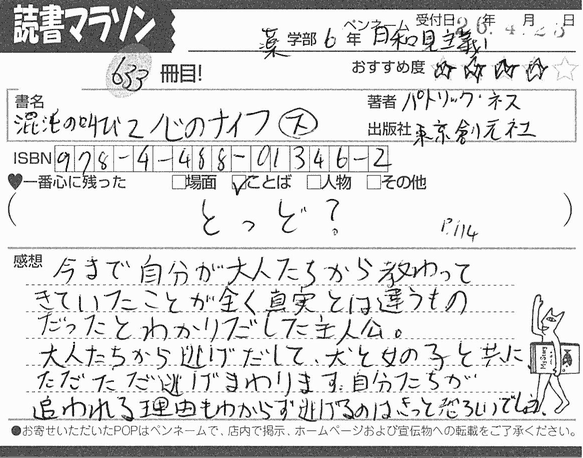 読書マラソン
ペンネーム 受付日26年4月23日
薬学部6年 日和見主義
633冊目!
おすすめ度 ☆☆☆☆☆
書名
混沌の叫び2 心のナイフ 下
著者 パトリック・ネス
出版社 東京創元社
ISBN 978-4-488-01346-2
♥一番心に残った □場面 ☑ことば □人物 □その他
(とっど?)
P.114
感想 今まで自分が大人たちから教わって
きていたことが全く真実とは違うもの
だったとわかりだした主人公。
大人たちから逃げだして、犬と女の子と共に
ただただ逃げまわります。自分たちが
追われる理由もわからず逃げるのはきっと恐ろしいでしょう。
●お寄せいただいたPOPはペンネームで、店内で掲示、ホームページおよび宣伝物への転載をご了承ください。